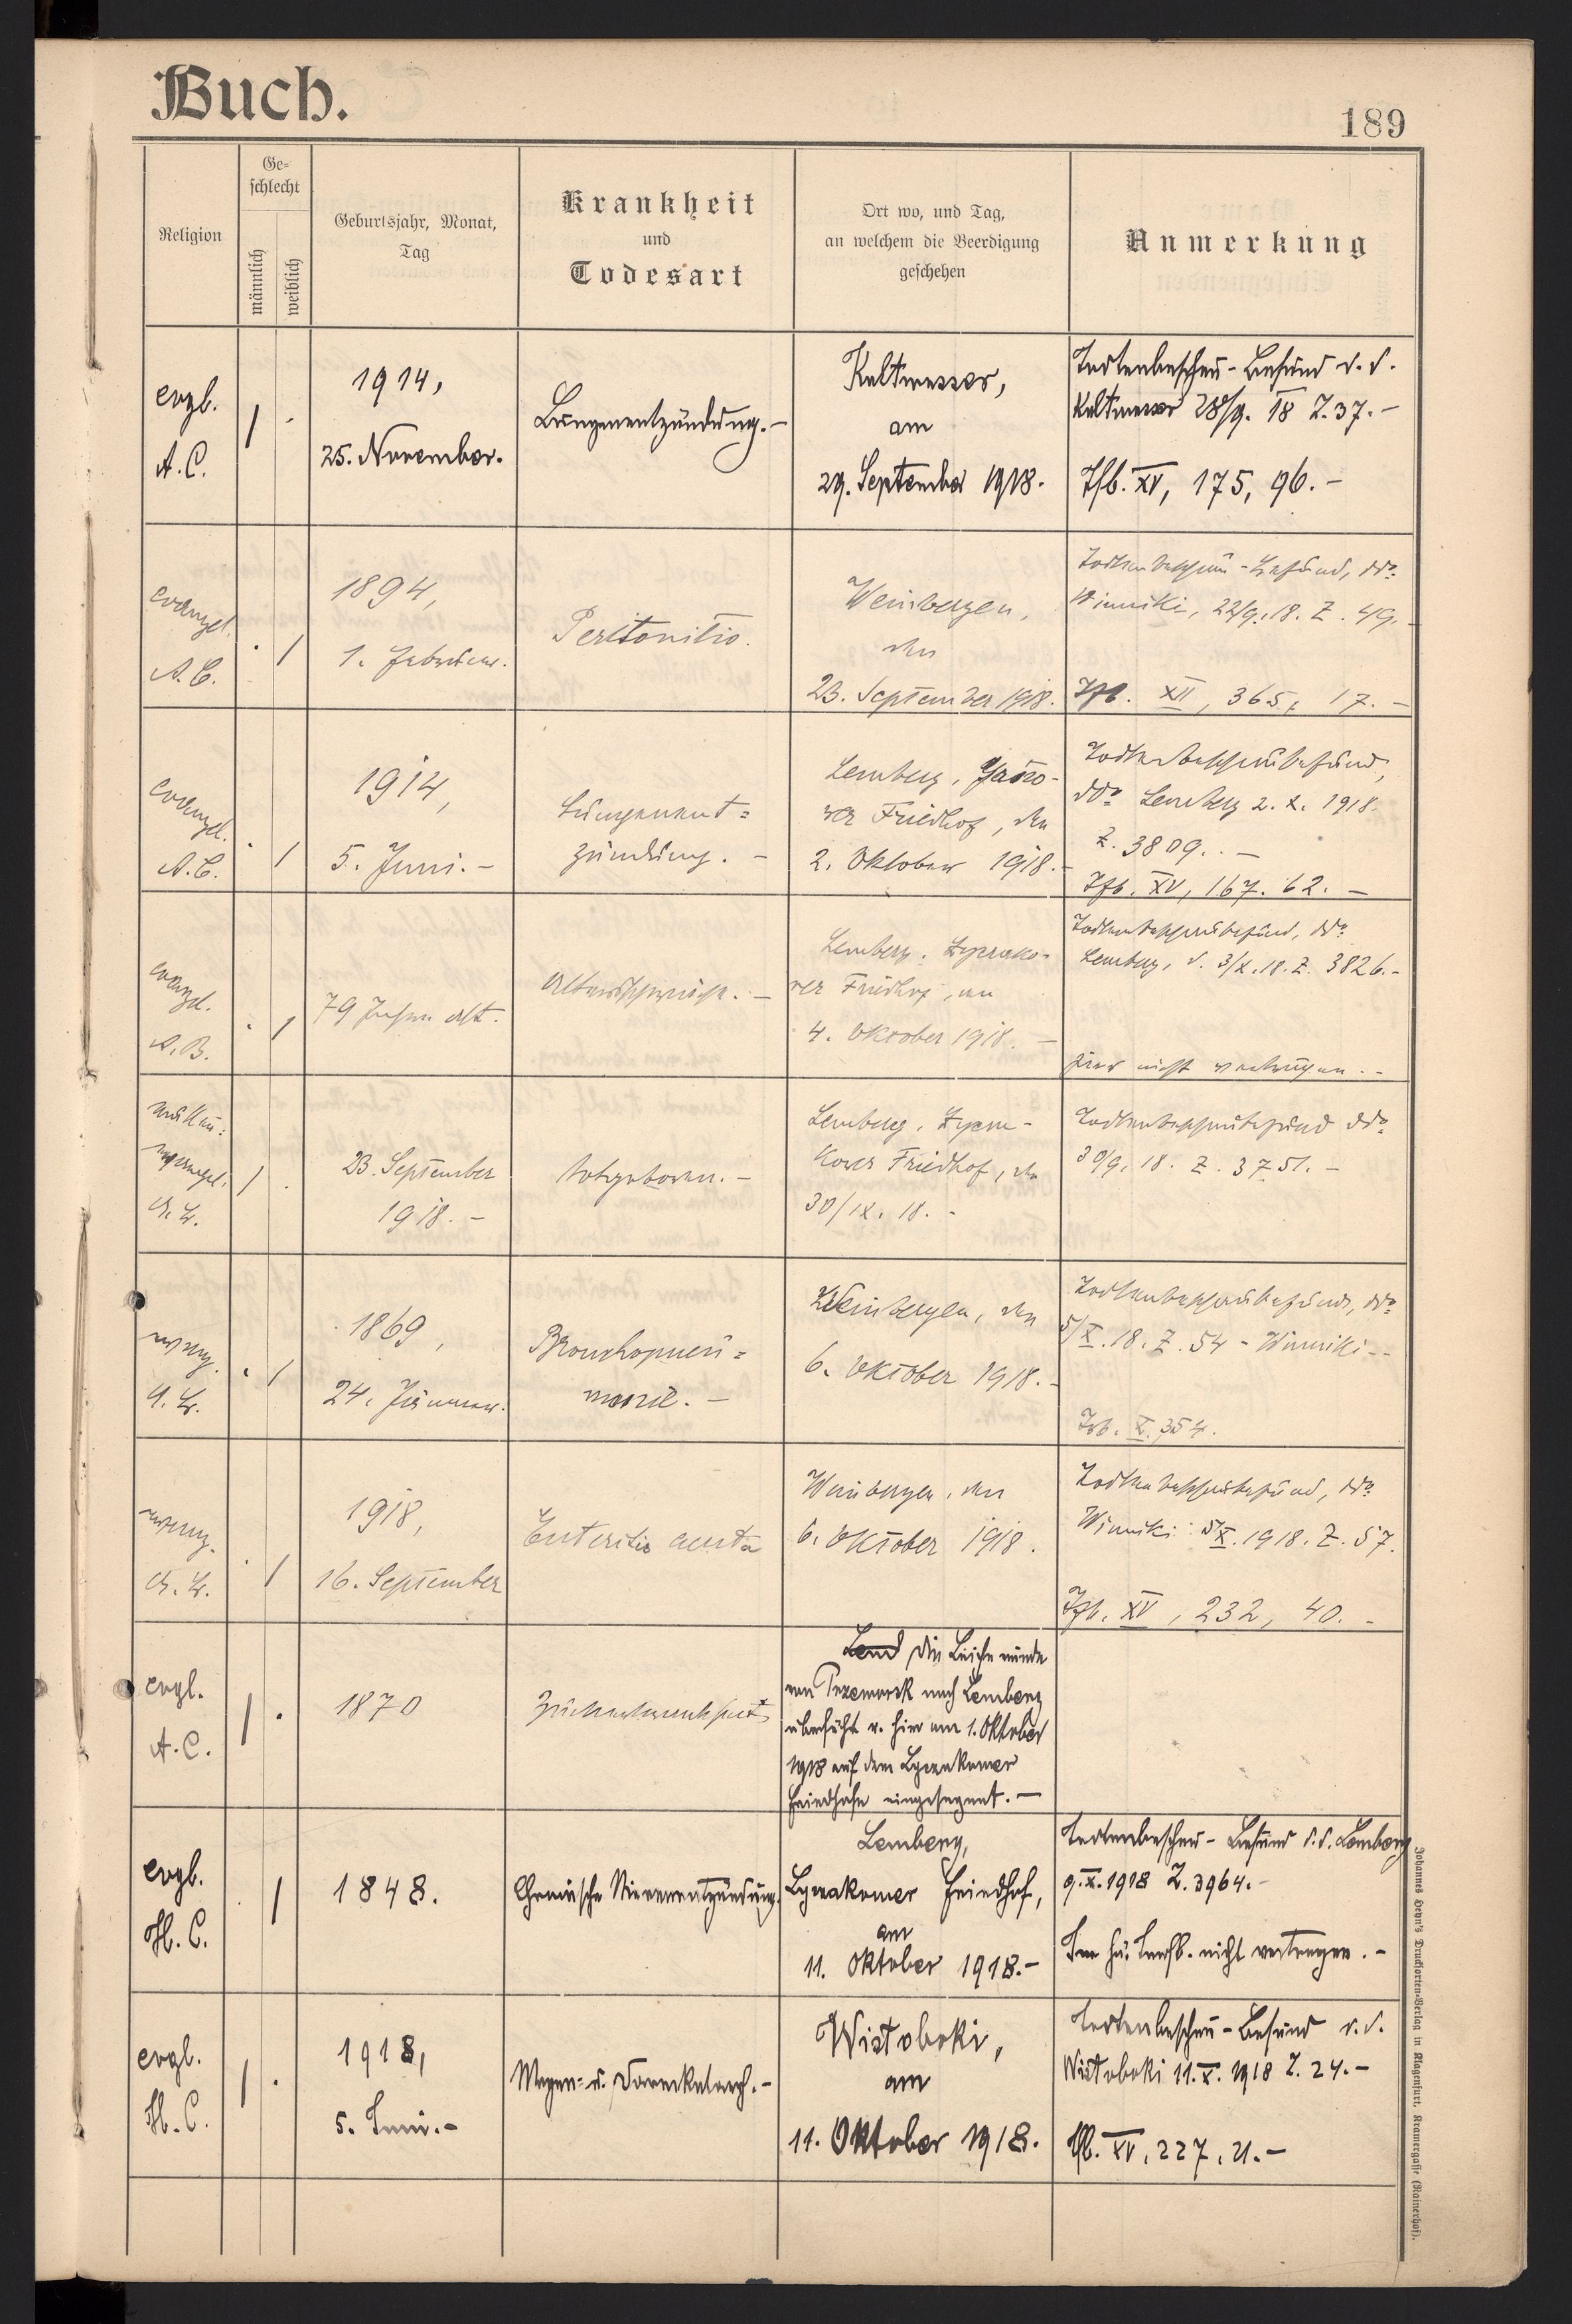 Buch.
189
Religion
Ge-
schlecht
männlich
weiblich
Geburtsjahr, Monat,
Tag
Krankheit
und
Todesart
Ort wo, und Tag,
an welchem die Beerdigung
geschehen
Anmerkung
evgl.
A. C.
1914,
25. November.
Lungenentzündung.-
Kaltwasser,
am
29. September 1918.
Todtenbeschau-Befund d. d.
Kaltwasser 28/9. 18 Z. 37.-
Tfb. XV, 175, 96.-
evangel.
A. C.
1894,
1. Februar.
Peritonitis.
Weinbergen,
den
23. September 1918.
Todtenbeschau-Befund, ddo
Winniki, 22/9. 18. Z. 49.-
Tfb. XII, 365, 17.-
evangel.
A. C.
1914,
5. Juni.-
Lungenent=
zündung.-
Lemberg, Jano-
wer Friedhof, den
2. Oktober 1918.-
Todtenbeschaubefund,
ddo Lemberg 2. X. 1918.
Z. 3809.-
Tfb. XV, 167. 62.-
evangel.
A. B.
79 Jahre alt.
Altersschwäche.-
Lemberg,
Friedhof, am
4. Oktober 1918.-
Todtenbeschaubefund, ddo
Lemberg, d. 3/X. 18. Z. 3826.-
hier nicht vertragen.-
23. September
1918.-
totgeboren.-
Lemberg,
kower Friedhof, den
30/IX. 18.-
Todtenbeschaubefund ddo
30/9. 18. Z. 3751.-
evang.
A. B.
1869,
24. Jänner.
Bronchopneu=
monie.-
Weinbergen, den
6. Oktober 1918.-
Todtenbeschaubefund, ddo
5/X. 18. Z. 54 - Winniki--
X. 354.
evang.
A. B.
1918,
16. September
Enteritis acuta
Weinbergen, den
6. Oktober 1918.
Todtenbeschaubefund, ddo
Winniki 5/X. 1918. Z. 57.
Tfb. XV, 232, 40.-
evgl.
A. C.
1870
Zuckerkrankheit
Die Leiche wurde
von Przeworsk nach Lemberg
überführt u. hier am 1. Oktober
1918 auf dem Lyczakower
Friedhofe eingesegnet.-
evgl.
H. C.
1848.
Chronische Nierenentzündung.
Lemberg,
Lyczakower Friedhof,
am
11. Oktober 1918.-
Todtenbeschau-Befund d. d. Lemberg
9. X. 1918 Z. 3964.-
Im nicht vertragen.-
evgl.
H. C.
1918,
5. Juni.-
Magen- u. Darmkatarrh.-
Wistoboki,
am
11. Oktober 1918.
Todtenbeschau-Befund d. d.
Wistoboki 11. X. 1918 Z. 24.-
Tfb. XV, 227, 21.-
Johannes Heyn's Drucksorten-Verlag in Klagenfurt, Kramergasse (Rainerhof).